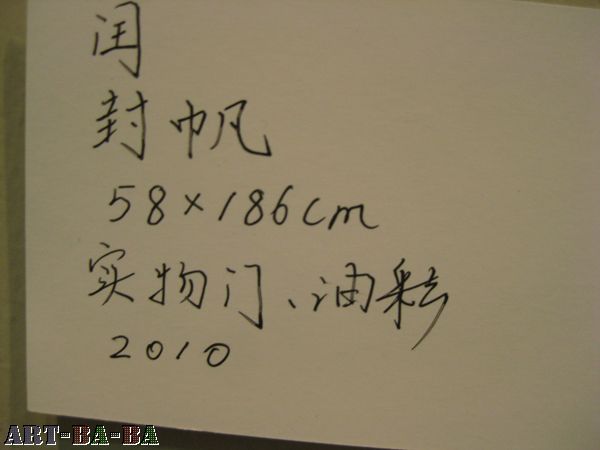 闰
封帆
58×186cm
实物门、油彩
2010
ART-BA-BA